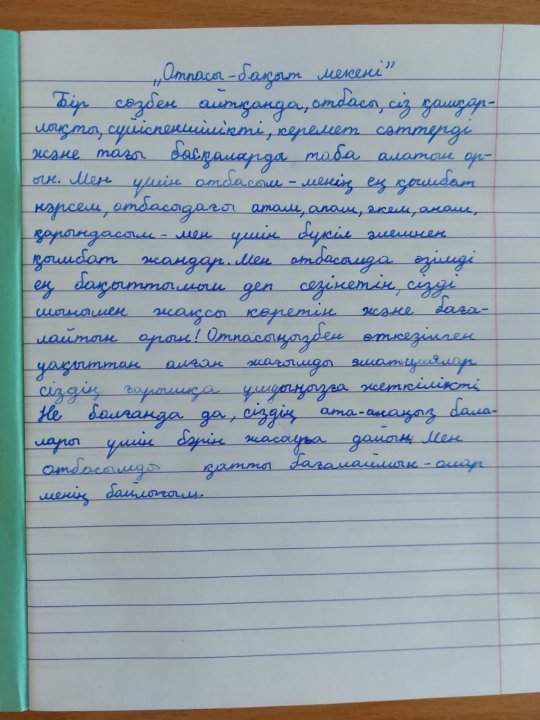 „Отпасы-бақыт мекені"
Бір сөзбен айтқанда, отбасы, сіз қамқор-
лықты, сүйіспеншілікті, керемет сәттерді
және тағы басқаларды таба алатын ор-
ын. Мен үшін отбасым - менің ең қымбат
нәрсем, отбасыдағы атам, апам, әкем, анам,
қарындасым - мен үшін бүкіл әлемнен
қымбат жандар. Мен отбасымда өзімді
ең бақыттымын деп сезінетін, сізді
шынымен жақсы көретін және баға-
лайтын орын! Отпасыңызбен өткезілген
уақыттан алған жағымды эматциялар
сіздің ғарышқа ұшуыңызға жеткілікті
Не болғанда да, сіздің ата-анаңыз бала-
лары үшін бәрін жасауға дайын. Мен
отбасымды қатты бағалаймын - олар
менің байлығым.